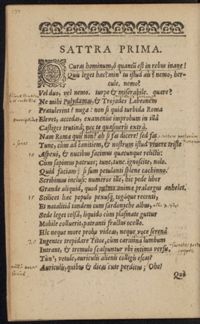 SATYRA PRIMA.
O Curas hominum, ô quantũ est in rebus inane!
Quis leget hæc? min' tu istud ais? nemo, her-
cule, nemo?
Vel duo, vel nemo. turpe & miserabile. quare?
Ne mihi Polydamas, & Troiades Labeonem
Prætulerint? nugæ: non si quid turbida Roma
Elevet, accedas; examenve improbum in illa
Castiges trutina; nec te quæsiveris extrà.
Nam Romæ quis non? ah si fas dicere! sed fas
Tunc, cùm ad canitiem, & nostrum istud vivere triste
Aspexi, & nucibus facimus quæcunque relictis:
Cùm sapimus patruos; tunc, tunc ignoscite, nolo.
Quid faciam? sed sum petulanti splene cachinno.
Scribimus inclusi; numeros ille, hic pede liber
Grande aliquid, quod animæ prælargus anhelet.
Scilicet hæc populo pexusq; togáque recenti,
Et natalitiâ tandem cum sardonyche albus,
Sede leges celsâ, liquido cùm plasmate guttur
Mobile collueris, patranti fractus ocello.
Hic neque more probo videas, neque voce serenâ
Ingentes trepidare Titos, cùm carmina lumbum
Intrant, & tremulo scalpuntur ubi intima versu.
Tun', vetule, auriculis alienis colligis escas?
Auriculis, quibus & dicas cute perditus, Ohe?
Quò